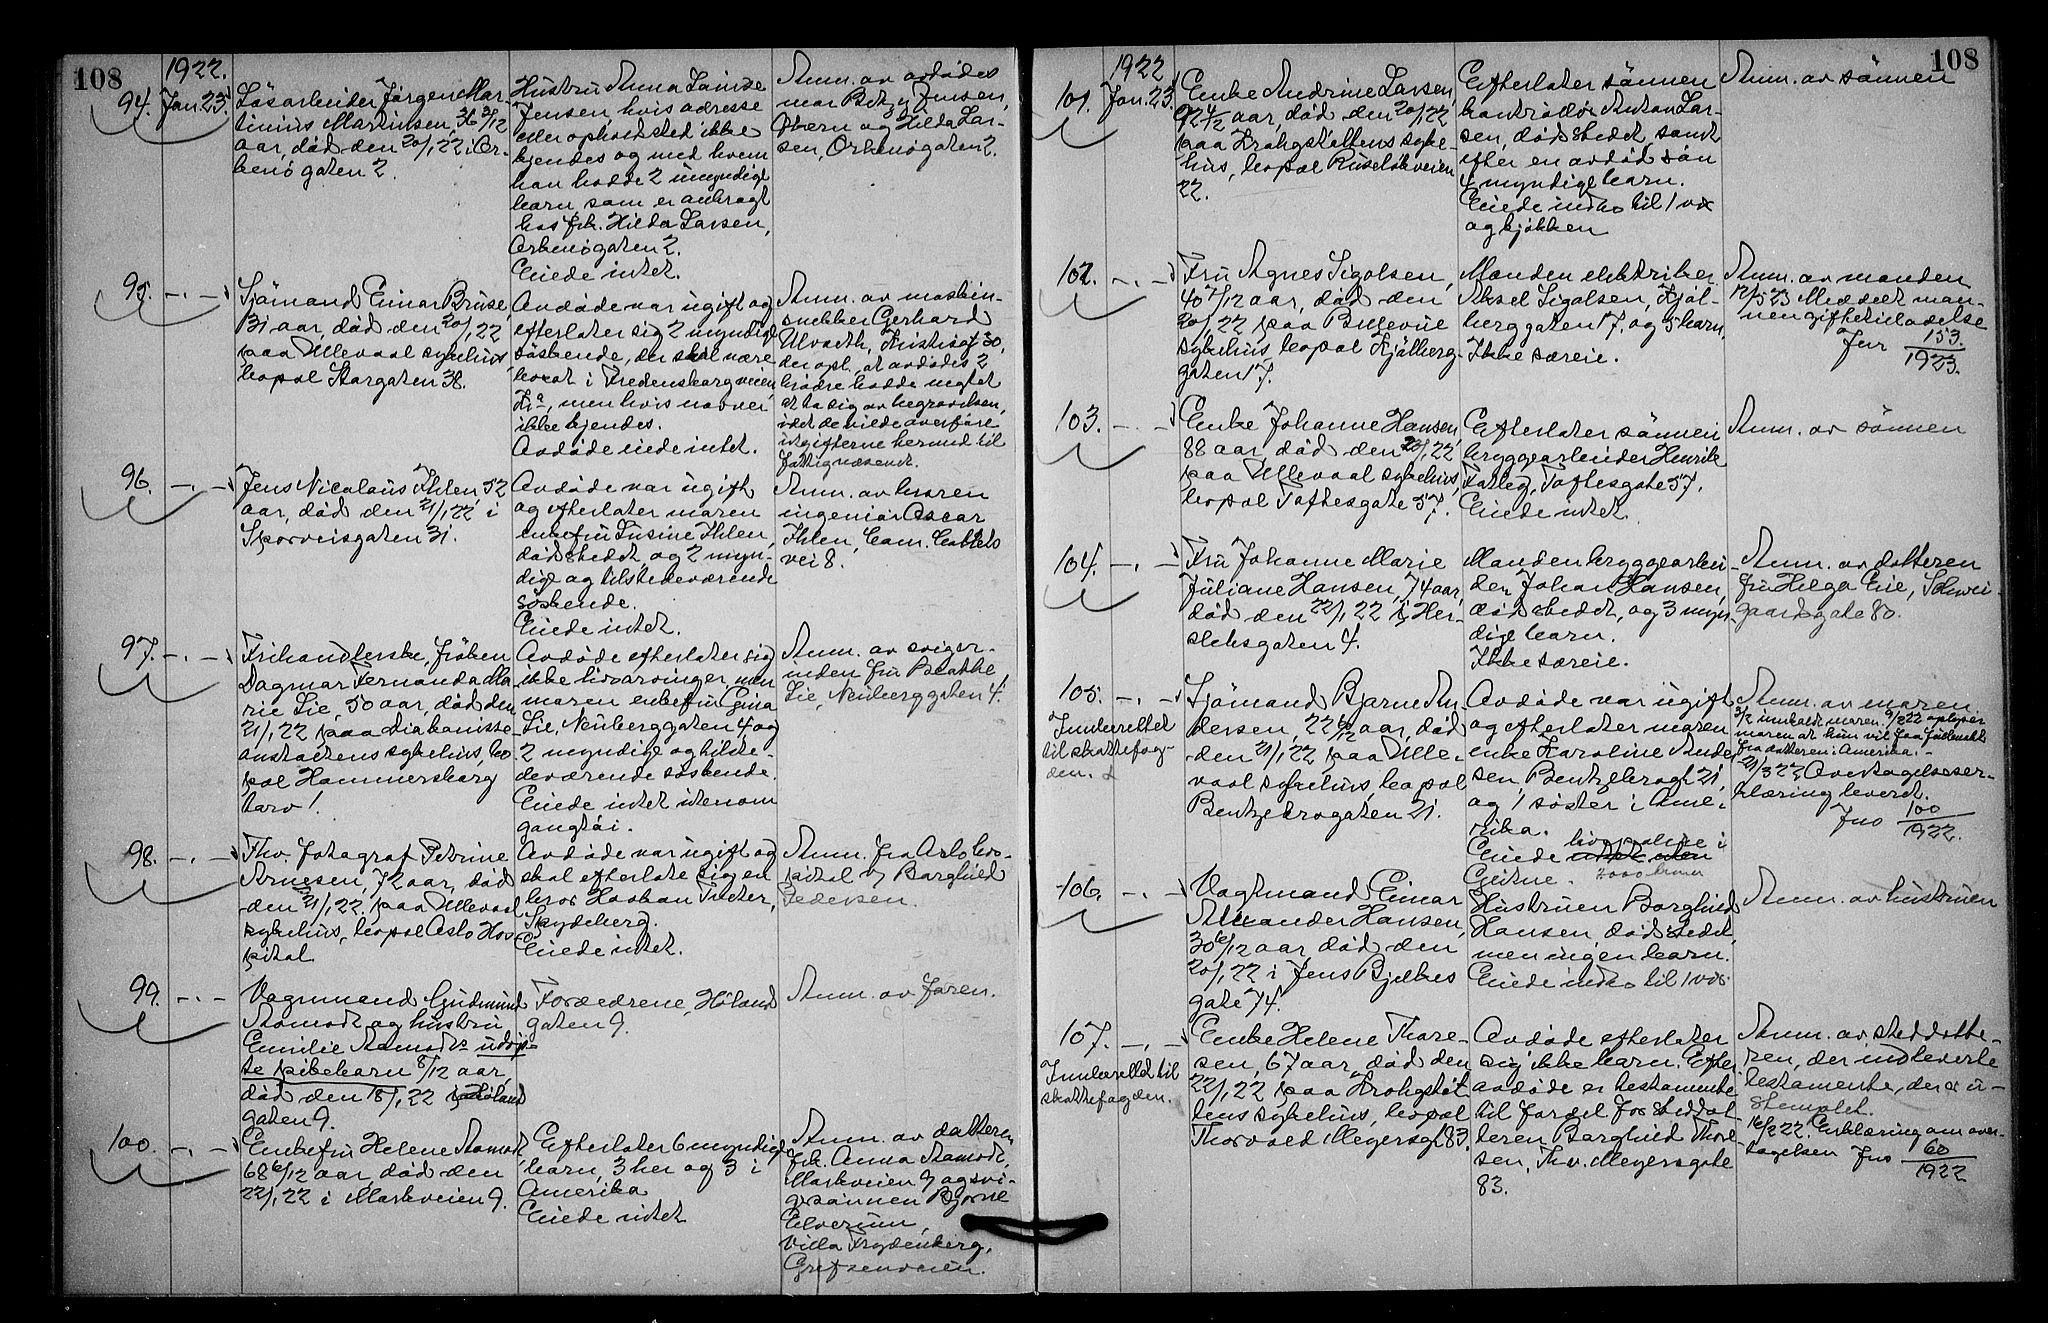 108
1922.
94. Jan. 23.
Løsarbeider Jørgen Mar-
tinius Martinsen, 36 3/12
aar, død den 20/1 22 i Or-
kenøgaten 2.
Hustru Anna
Jensen, hvis adresse
eller opholdsted ikke
kjendes og med hvem
han hadde 2 umyndige
barn, som er anbragt
hos frk. Hilda Larsen,
Orkenøgaten 2.
Eiede intet.
Anm. av avdødes
mor Jensen,
og Hilda Lar-
sen, Orkenøgaten 2.
95. -"-
Sjømand Einar Bruse
31 aar, død den 20/1 22
paa Ullevaal sykehus,
bopæl Storgaten 38.
Avdøde var ugift og
efterlater sig 2 myndige
søskende, der skal være
boxat i Fredensborgveien
men hvis navne
ikke kjendes.
Avdøde eiede intet.
Anm. av maskin-
snekker Gerhard
30,
der opl. at avdødes 2
brødre hadde negtet
at ta sig av begravelsen,
idet de vilde overføre
utgifterne hermed til
fattigvæsenet.
96. -"-
Jens Nicolaus Ihlen 52
aar, død den 21/1 22 i
Sporveisgaten 31.
Avdøde var ugift
og efterlater moren
enkefru Susine Ihlen,
dødstedet, og 2 myn-
dige og tilstedeværende
søskende.
Eiede intet.
Anm. av broren
ingeniør Oscar
Ihlen, Cam. Colletts
vei 8.
97. -"-
Frihandlerske, frøken
Dagmar Fernanda Ma-
rie Lie, 50 aar, død den
21/1 22 paa Diakonisse-
anstaltens sykehus, bo-
pæl Hammersborg
torv 1.
Avdøde efterlater sig
ikke livsarvinger, men
moren enkefru Gina
Lie, Neuberggaten 4 og
2 myndige og tilste-
deværende søskende.
Eiede intet utenom
gangtøi.
Anm. av sviger-
inden fru Beathe
Lie, Neuberggaten 4.
98. -"-
Fhv. fotograf Petrine
Arnesen, 72 aar, død
den 21/1 22 paa Ullevaal
sykehus, bopæl Oslo Hos-
pital
Avdøde var ugift og
skal efterlate sig en
bror Haakon
Spydeberg.
Eiede intet.
Anm. fra Oslo hos-
pital v Borghild
Pedersen.
99. -"-
Vognmand Gudmund
Aamodt og hustru
Emilie Aamodts udøp-
te pikebarn 8/12 aar,
død den 18/1 22 i Høland
gaten 9.
Forældrene, Høland
gaten 9.
Anm. av faren.
100. -"-
Enkefru Helene Aamodt,
68 6/12 aar, død den
22/1 22 i Markveien 9.
Efterlater 6 myndige
barn, 3 her og 3 i
Amerika
Eiede intet
Anm. av datteren
frk. Anna Aamodt,
Markveien 9 og svi-
gersønnen Bjarne
Elverum,
Villa Frydenberg,
Grefsenveien.
108
1922
101. Jan. 23.
Enke Andrine Larsen,
92 4/12 aar, død den 20/1 22
paa Krohgstøttens syke-
hus, bopæl Ruseløkveien
22.
Efterlater sønnen
kontorbud Anton Lar-
sen, dødstedet, samt
efter en avdød søn
4 myndige barn.
Eiede indbo til 1 vær
og kjøkken
Anm. av sønnen
102. -"-
Fru Agnes Sigolsen,
40 7/12 aar, død den
20/1 22 paa Bellevue
sykehus, bopæl Kjølberg-
gaten 17.
Manden elektriker
Aksel Sigolsen, Kjøl-
berggaten 17, og 5 barn,
Ikke særeie.
Anm. av manden
12/5 23 Meddelt man-
nen giftetilladelse
Jnr 153.
1923.
103. -"-
Enke Johanne Hansen
88 aar, død den 20/1 22
paa Ullevaal sykehus,
bopæl Toftesgate 57.
Efterlater sønnen
bryggearbeider Henrik
Toftesgate 57.
Eiede intet
Anm. av sønnen
104. -"-
Fru Johanne Marie
Juliane Hansen, 74 aar,
død den 22/1 22 i Her-
slebsgaten 4.
Manden bryggearbei-
der Johan Hansen,
dødstedet, og 3 myn-
dige barn.
Ikke særeie.
Anm. av datteren
fru Helga Eie, Schwei-
gaardsgate 80.
105. -"-
Innberettet
til skattefog-
den.
Sjømand Bjarne An-
dersen, 22 6/12 aar, død
den 21/1 22 paa Ulle-
vaal sykehus, bopæl
Bentzebrogaten 21.
Avdøde var ugift
og efterlater moren
enke Karoline Ander-
sen, Bentzebrogt 21,
og 1 søster i Ame-
rika.
Eiede intet uten livspolise i
Gjensidige. 2000 kroner
Anm. av moren.
3/2 innkaldt moren. 9/2 22 oplyser
moren at hun vil faa fuldmakt
fra datteren i Amerika.-
21/3 22 Overtagelseser-
klæring levert.
Jno 100
1922.
106. -"-
Vagtmand Einar
Alexander Hansen,
30 6/12 aar, død den
20/1 22 i Jens Bjelkes
gate 74.
Hustruen Borghild
Hansen, dødstedet,
men ingen barn.
Eiede indbo til 1 vær.
Anm. av hustruen
107. -"-
Innberettet til
skattefogden.
Enke Helene Thore-
sen, 67 aar, død den
22/1 22 paa Krohgstøt-
tens sykehus, bopæl
Thorvald Meyersgt 83.
Avdøde efterlater
sig ikke barn. Efter
avdøde er testamente
til fordel for steddat-
teren Borghild Thore-
sen, Thv. Meyersgate
83.
Anm. av steddatte-
ren, der indleverte
testamente, der er u-
stemplet.
16/2 22. Erklæring om over-
tagelsen Jno 60
1922